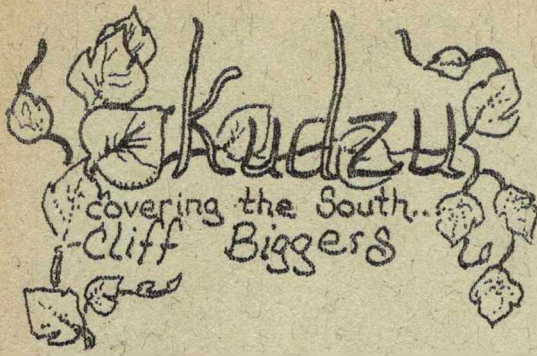 Kudzu
covering the South..
-Cliff Biggers